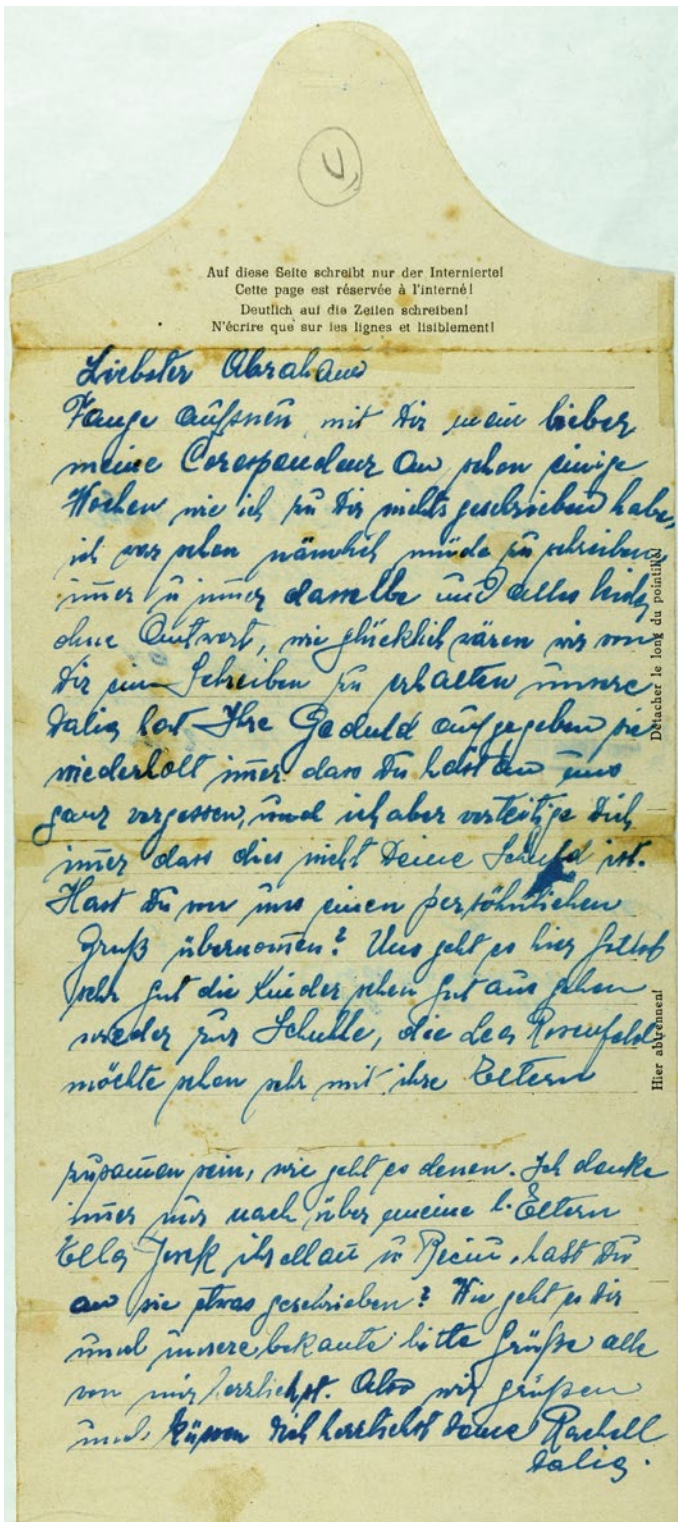 Auf diese Seite schreibt nur der Internierte!
Cette page est réservée à l'interné!
Deutlich auf die Zeilen schreiben!
N'écrire que sur les lignes et lisiblement!
Liebster Abraham
Fange aufsneu, mit Dir mein lieber
meine Corespondenz an, schon einige
Wochen wie ich zu Dir nichts geschrieben habe,
ich war schon nämlich müde zu schreiben
immer u immer dasselbe und alles leider
ohne Antwort, wie glücklich wären wir von
Dir ein Schreiben zu erhalten unsere
Dalia hat Ihre Geduld aufgegeben sie
wiederholt immer dass Du hast an uns
ganz vergessen, und ich aber verteitige Dich
immer dass dies nicht Deine Schuld ist.
Hast Du von uns einen persöhnlichen
Gruß übernomen? Uns geht es hier Gottlob
sehr gut die Kinder sehen gut aus gehen
wieder zur Schulle, die Lea Rosenfeld
möchte schon sehr mit ihre Eltern
zusamen sein, wie geht es denen. Ich denke
immer nur nach über meine l. Eltern
Ella, ihr u hast Du
an sie etwas geschrieben? Wie geht es Dir
und unsere bekante bitte Grüße alle
von mir herzlichst. Also wir grüßen
und küssen Dich herzlichst Deine Rachell
Dalia.
Détacher le long du pointillé!
Hier abtrennen!